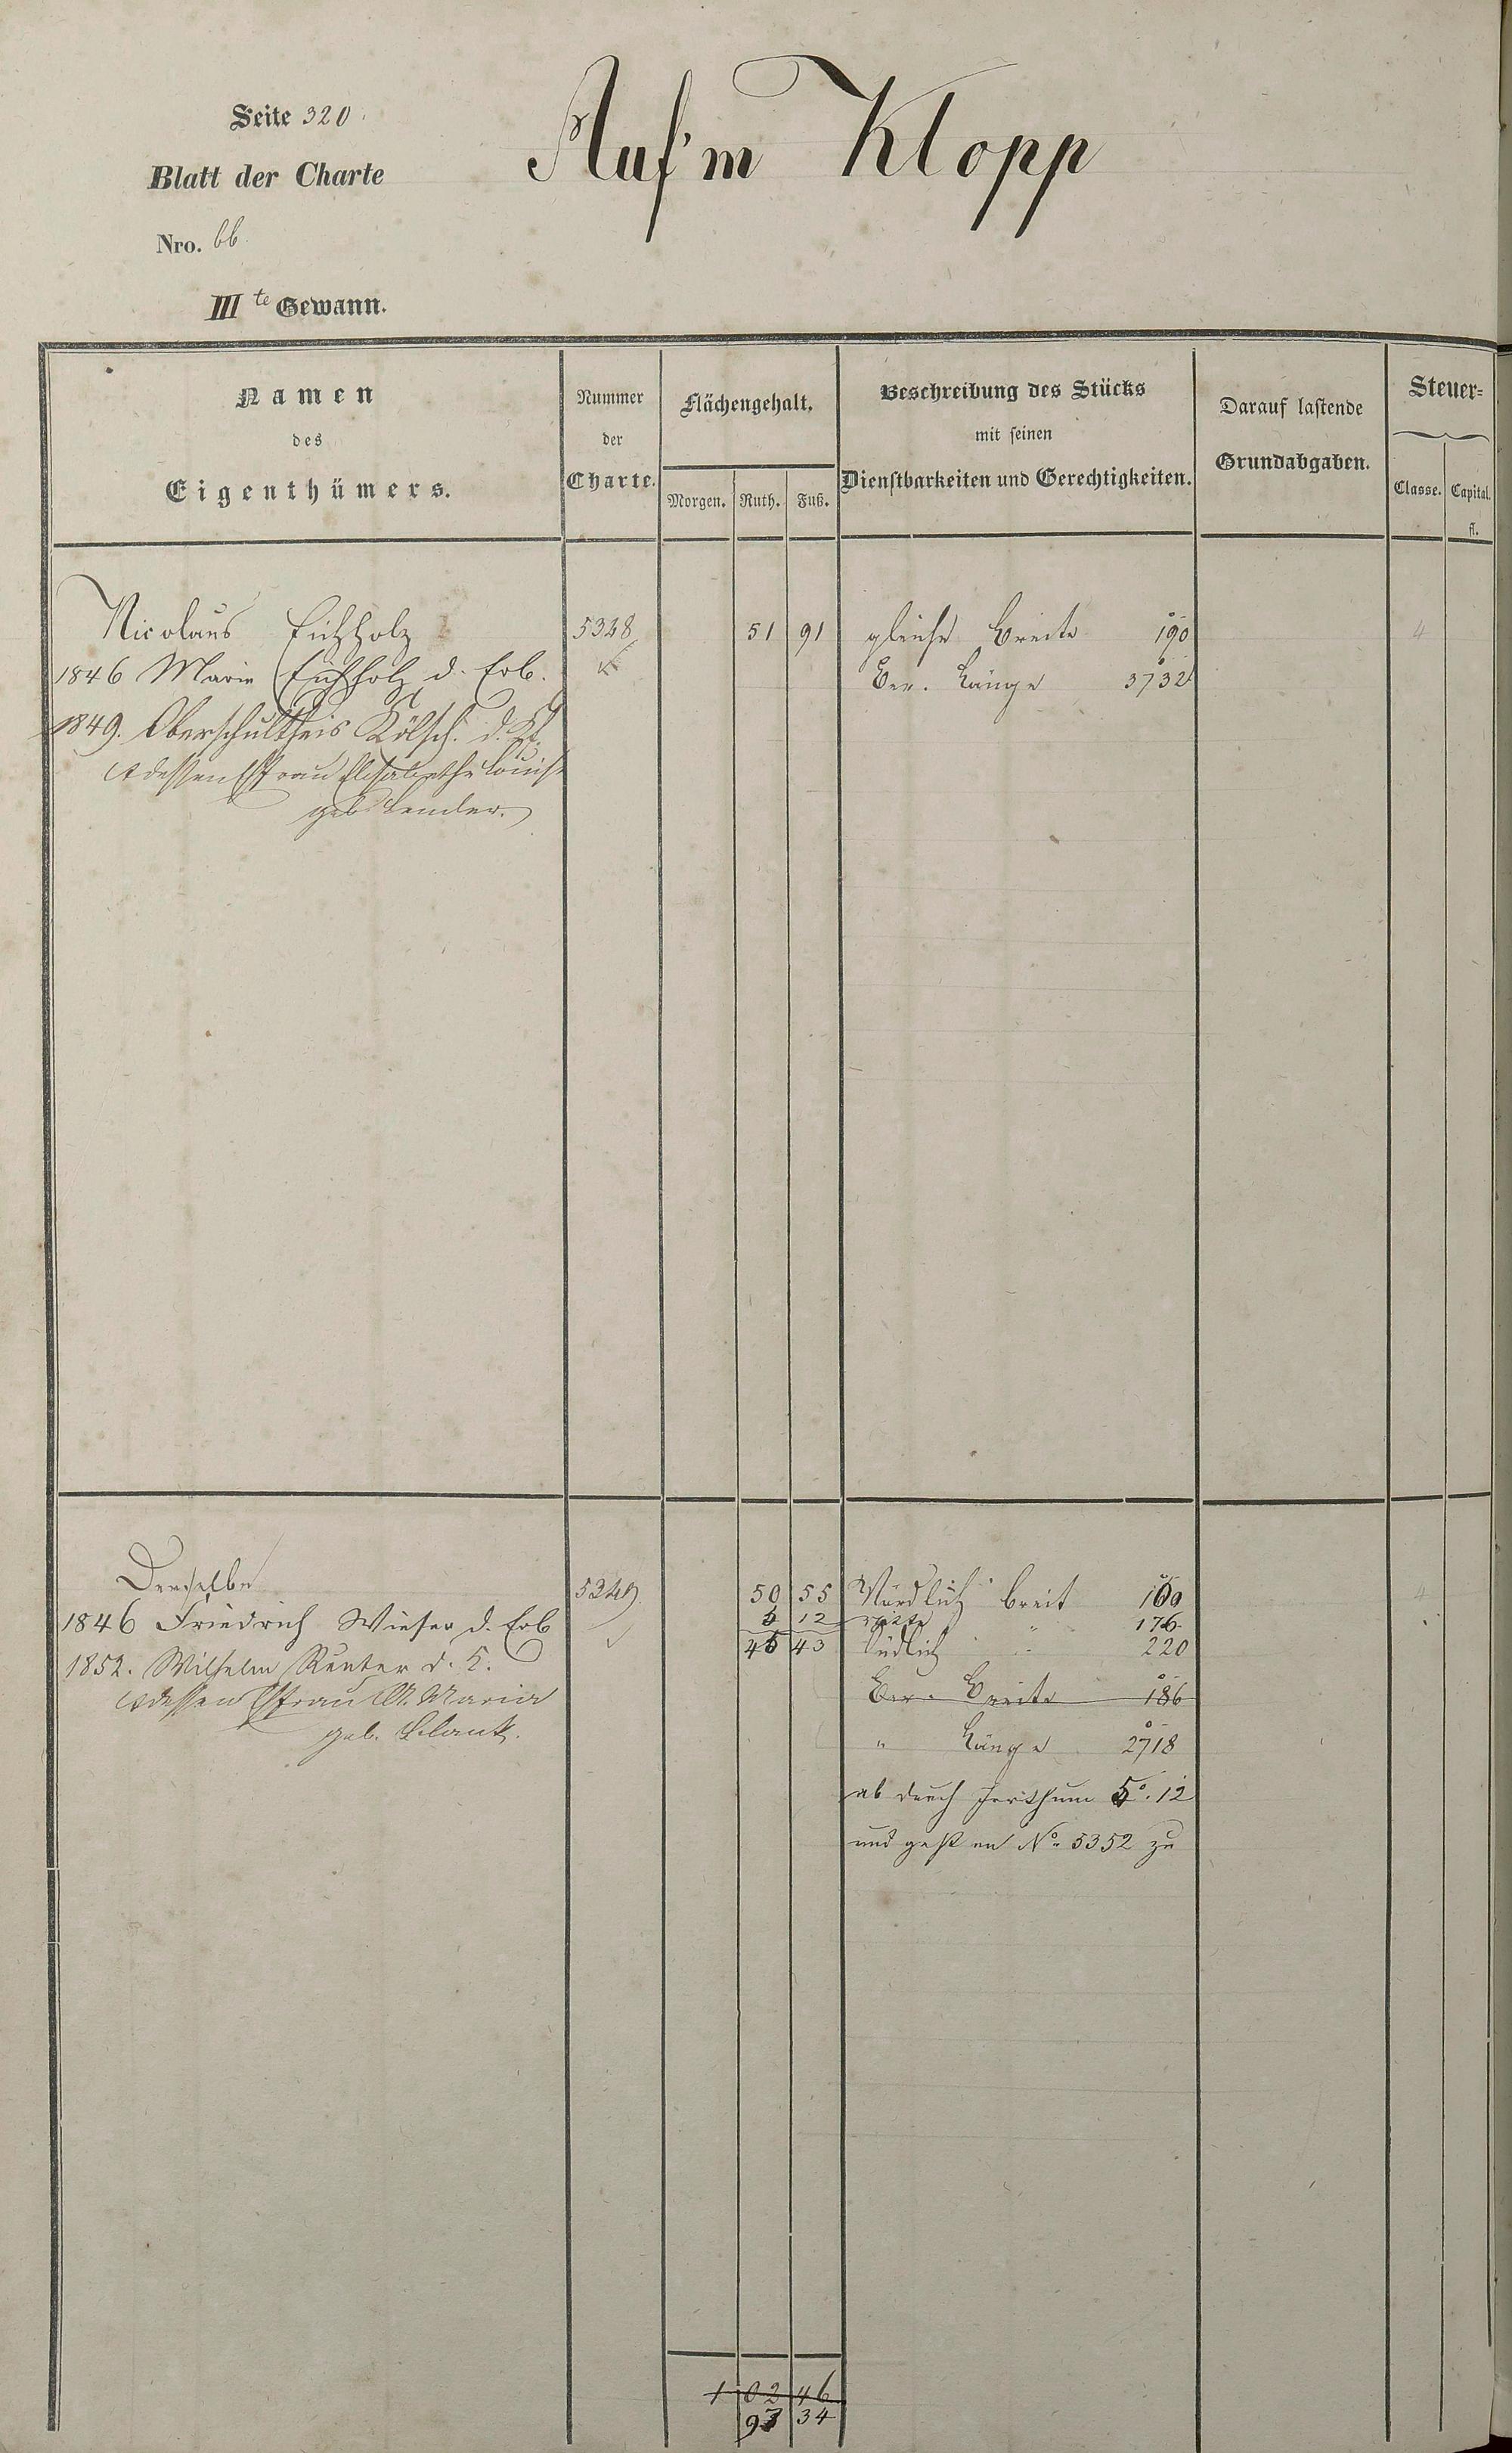 Seite 320.
Auf'm Klopp
Blatt der Charte
Nro. 66
III te Gewann.
Namen
des
Eigenthümers.
Nummer
der
Charte.
Flächengehalt.
Morgen. Ruth. Fuß.
Beschreibung des Stücks
mit seinen
Dienstbarkeiten und Gerechtigkeiten.
Darauf lastende
Grundabgaben.
Steuer-
Classe. Capital.
fl.
Nicolaus Eichholz 5348 51 91 gleiche Breite 190 4
1846 Marie Eichholz d. Erb. Ber. Länge 3732
1849. Oberschultheis Kölsch. d. Kf.
& dessen Ehfrau Elisabethe Louise
geb. Lender.
Derselbe 5349 50 55 Nördlich breit 160 4
1846 Friedrich Wieser d. Erb 5 12 mitte " 176
45 43 südlich " 220
1852. Wilhelm Reuter d. K.
& dessen Ehfrau A. Maria Ber. Breite 186
geb. Blank. " Länge 2718
ab durch Irrthum 5°. 12
und geht an No. 5352 zu
1 02 46
97 34